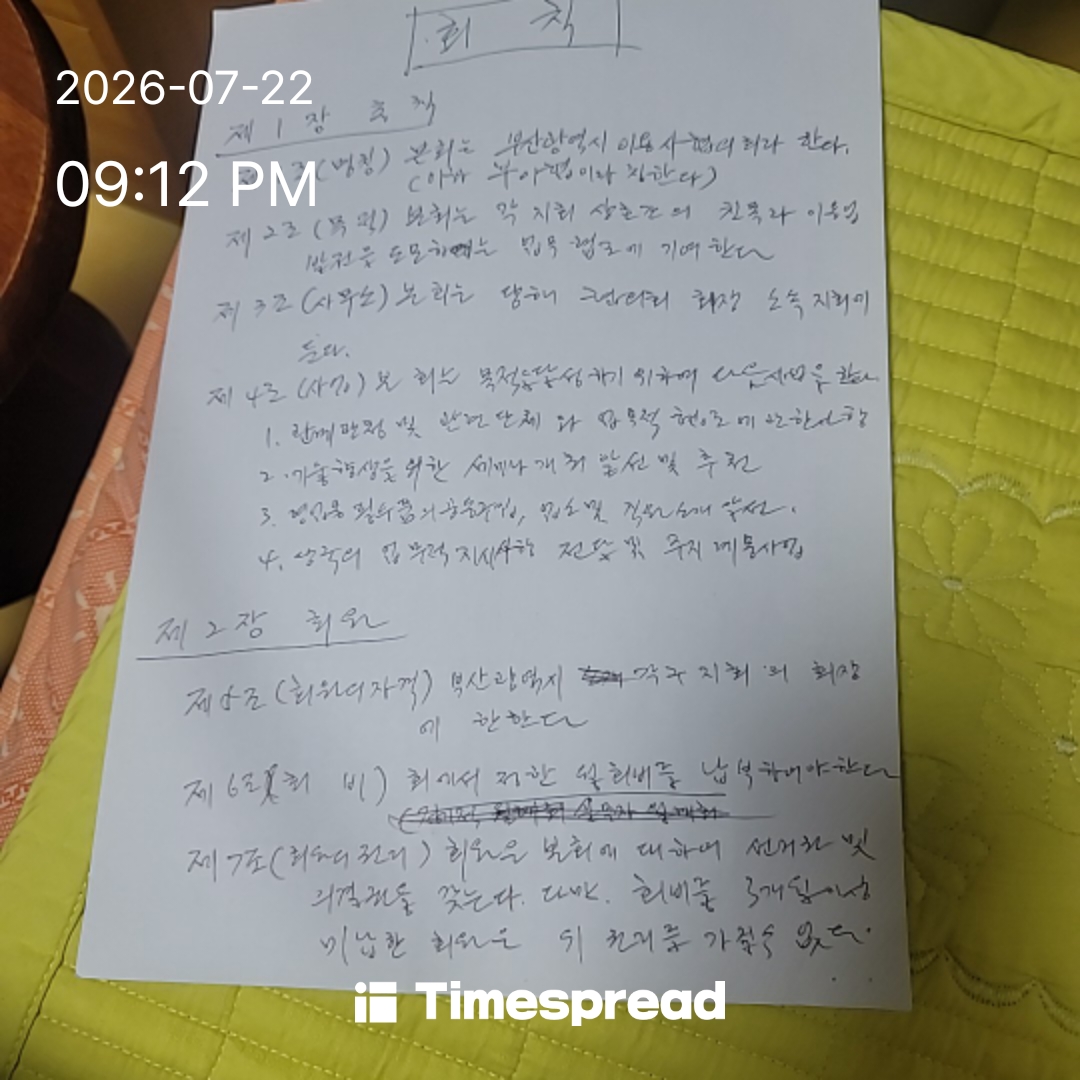 회 칙
2026-07-22
제 1 장 총 칙
09:12 PM
조(명칭) 본회는 부산광역시 이용사협의회라 한다.
(이하 부이협이라 칭한다)
제 2조 (목적) 본회는 각 지회 상호간의 친목과 이용업
발전을 도모하는 업무 협조에 기여한다
제 3조 (사무소) 본회는 당해 협의회 회장 소속 지회에
둔다.
제 4조 (사업) 본 회는 목적을 달성하기 위하여 다음사업을 한다.
1. 관계관청 및 관련단체 와 업무적 협조에 관한사항
2. 기술향상을 위한 세미나 개최 알선 및 추천
3. 영업용 필수품의 공동구입, 업소 및 직원소개 알선.
4. 상국의 업무적 지시사항 전달 및 주지 사업
제 2 장 회원
제 5조 (회원의자격) 부산광역시 각구 지회의 회장
에 한한다
제 6조 (회 비) 회에서 정한 월회비를 납부하여야한다
제 7조 (회원의권리) 회원은 본회에 대하여 선거권 및
의결권을 갖는다. 다만. 회비를 3개월이상
미납한 회원은 위 권리를 가질수 없다.
Timespread